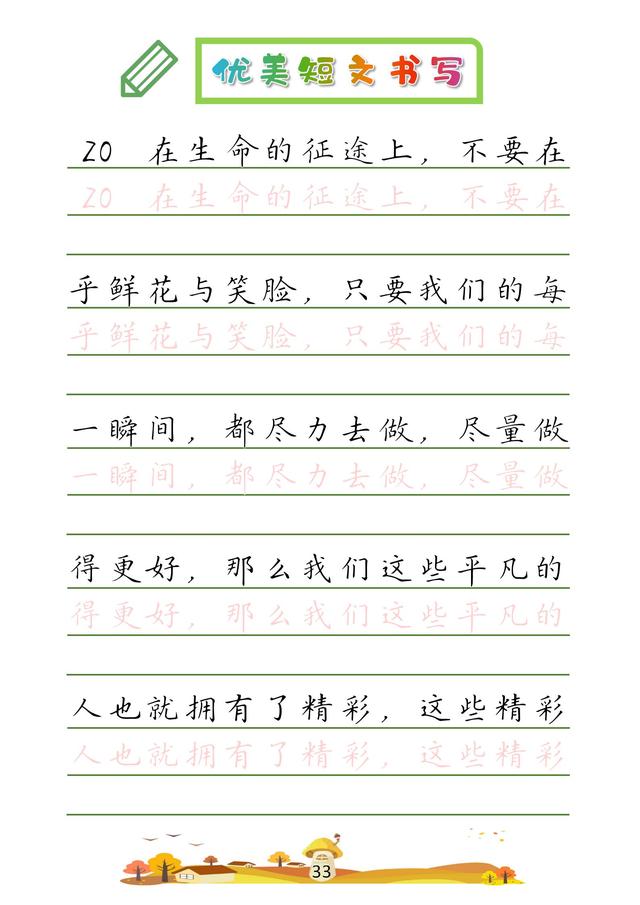 优美短文书写
20 在生命的征途上，不要在
20 在生命的征途上，不要在
乎鲜花与笑脸，只要我们的每
乎鲜花与笑脸，只要我们的每
一瞬间，都尽力去做，尽量做
一瞬间，都尽力去做，尽量做
得更好，那么我们这些平凡的
得更好，那么我们这些平凡的
人也就拥有了精彩，这些精彩
人也就拥有了精彩，这些精彩
33